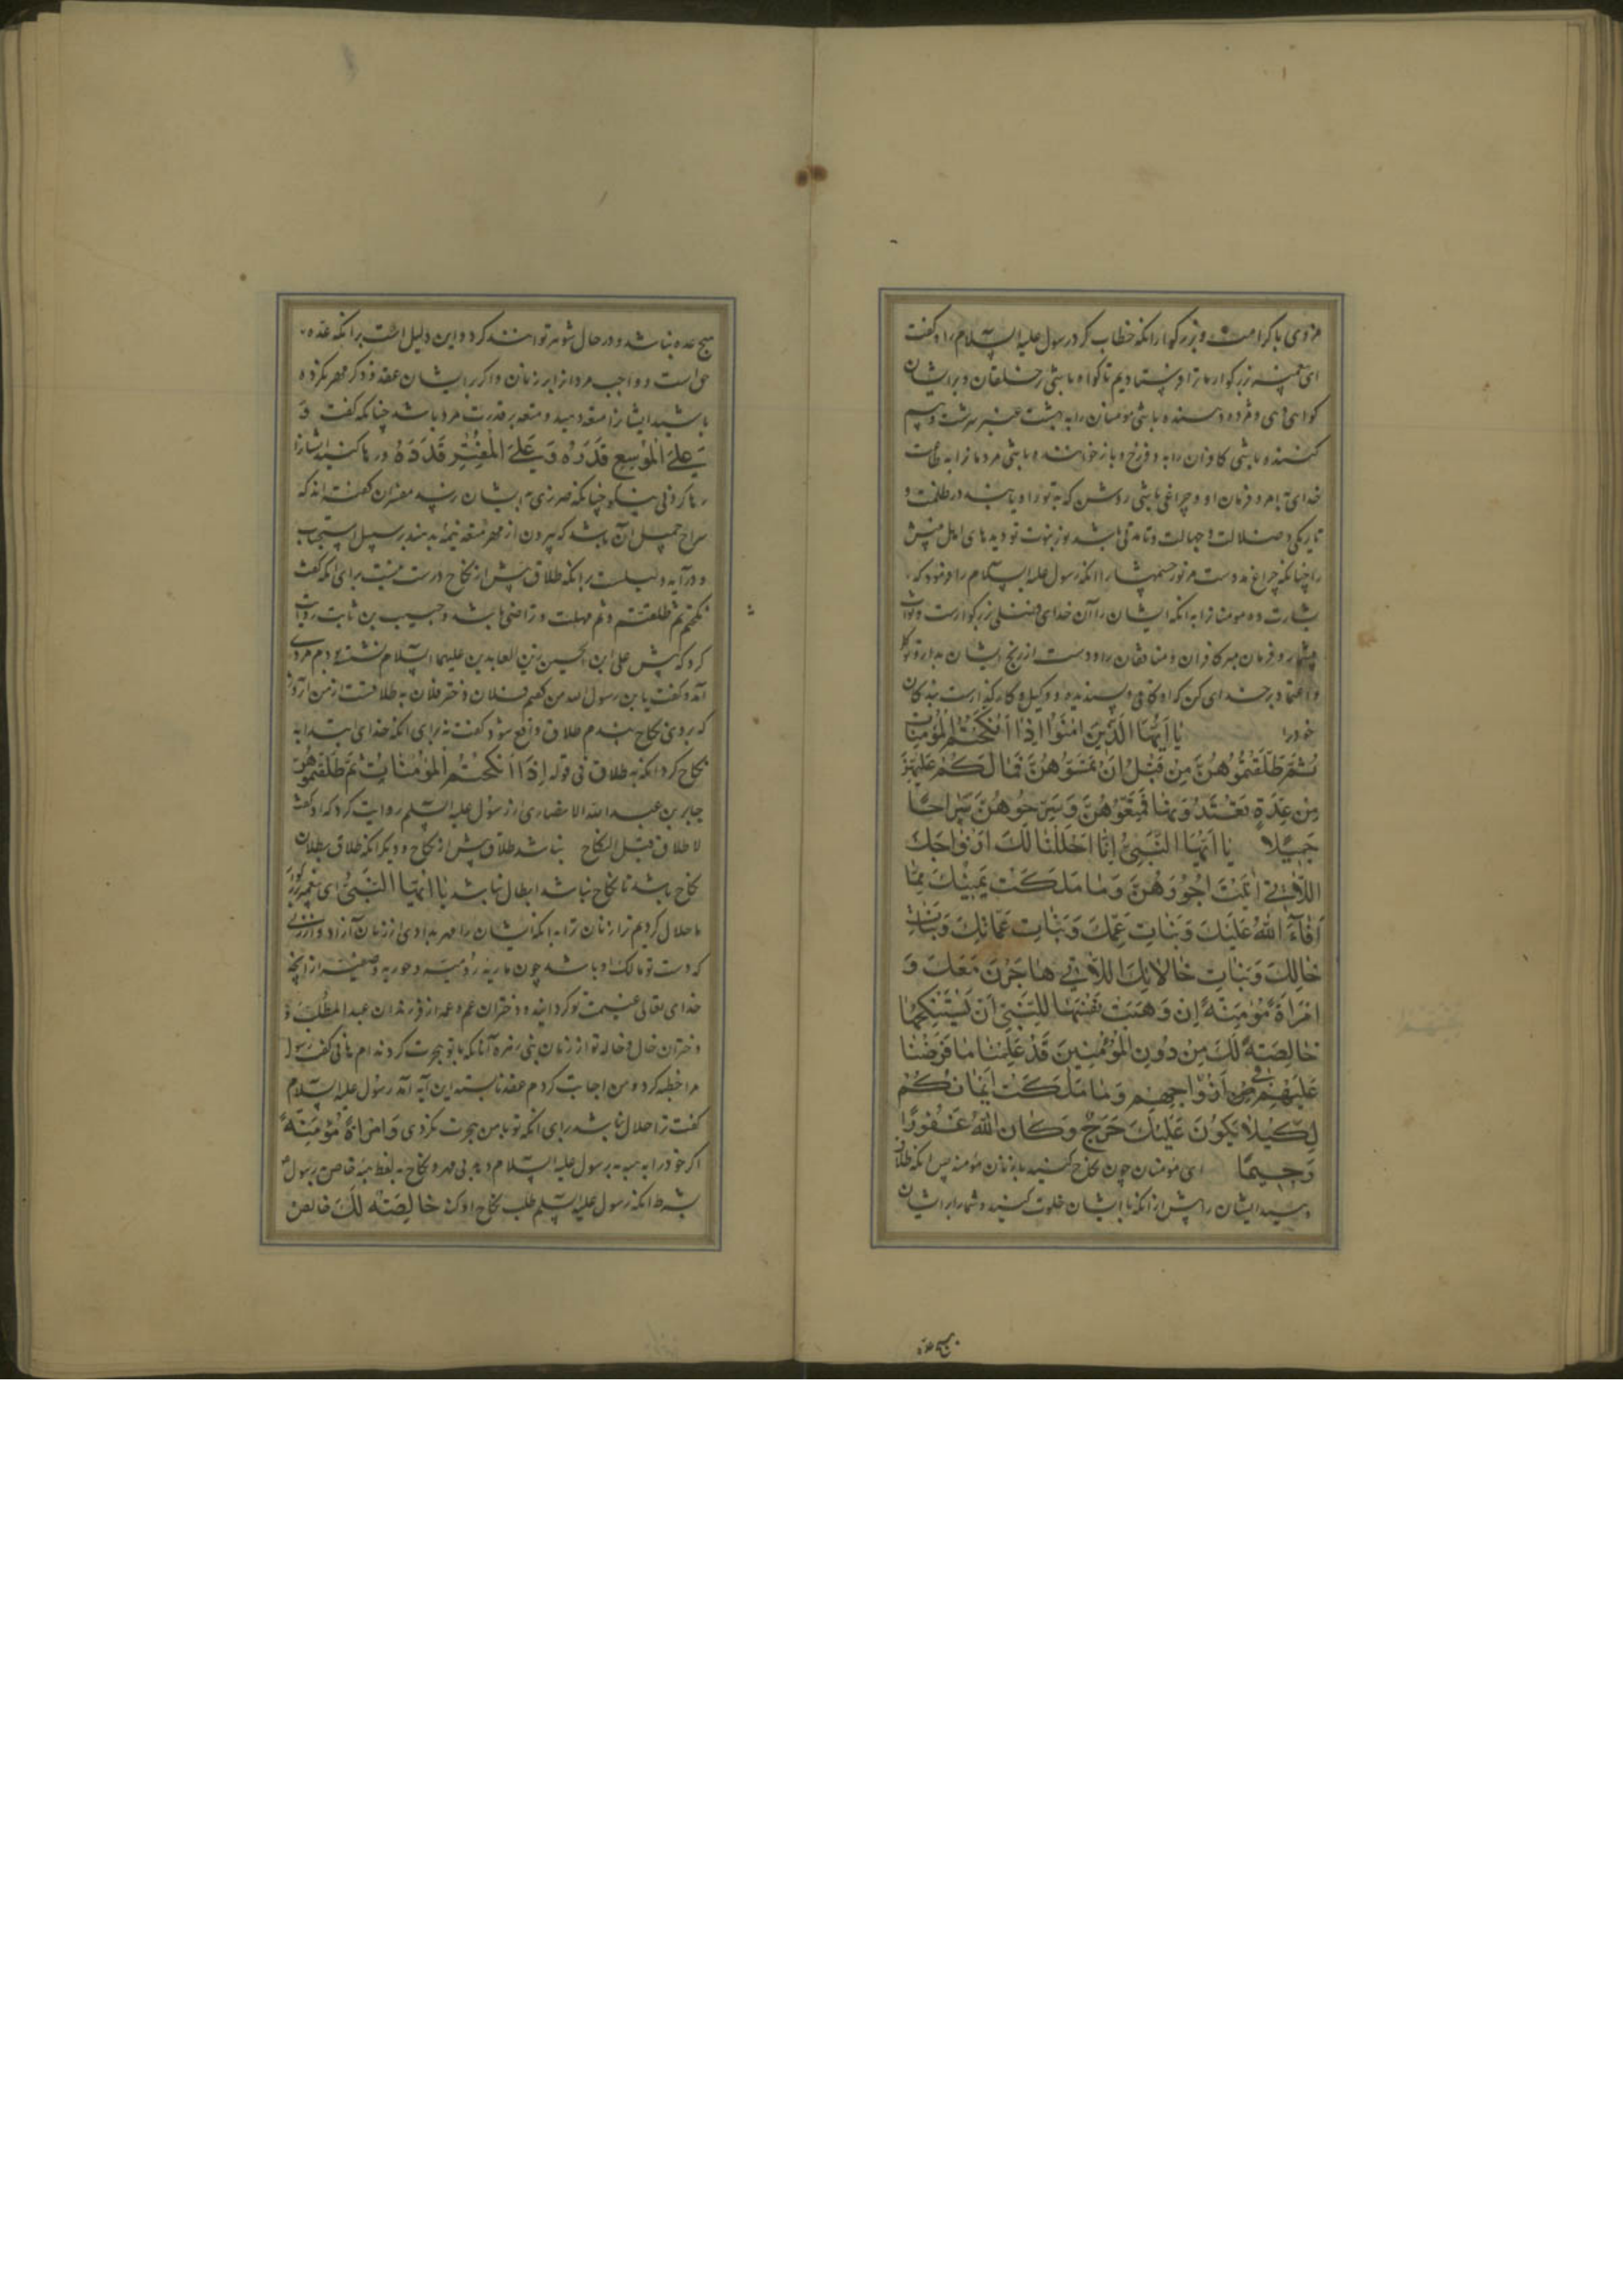 مزدی با کرامت و بزرگوار انکه خطاب کرد رسول علیه السلام را و گفت
ای پیغمبر بزرگوار ما ترا فرستادیم تا گواه باشی بر خلقان و بر ایشان
گواهی دهی و مژده دهنده باشی مومنان را به بهشت عنبر سرشت و بیم
کننده باشی کافران را به دوزخ و باز خواننده باشی مردمانرا به طاعت
خدای بامر و فرمان او و چراغی باشی روشن که به تو راه یابند در ظلمت و
تاریکی ضلالت و جهالت و تا مدتی باشد نور نبوت تو دیدهای اهل بینش
را چنانکه چراغ مددست مر نور چشمها را انکه رسول علیه السلام را فرمود که
بشارت ده مومنانرا به انکه ایشان را از خدای فضلی بزرگوارست و ثواب
بیشمار و فرمان مبر کافران و منافقان را و دست از رنج ایشان بدار و توکل
و اعتماد بر خدای کن که او کافی و پسندیده و وکیل و کارگذارست بندگان
خود را یا ایها الذین امنوا اذا نکحتم المؤمنات
ثم طلقتموهن من قبل ان تمسوهن فما لکم علیهن
من عدة تعتدونها فمتعوهن و سرحوهن سراحا
جمیلا یا ایها النبی انا احللنا لک ازواجک
اللاتی اتیت اجورهن و ما ملکت یمینک مما
افاء الله علیک و بنات عمک و بنات عماتک و بنات
خالک و بنات خالاتک اللاتی هاجرن معک و
امراة مؤمنة ان وهبت نفسها للنبی ان یستنکحها
خالصة لک من دون المؤمنین قد علمنا ما فرضنا
علیهم فی ازواجهم و ما ملکت ایمانکم
لکیلا یکون علیک حرج و کان الله غفورا
رحیما ای مومنان چون نکاح کنید با زنان مومنه پس انکه طلاق
دهید ایشان را پیش از انکه با ایشان خلوت کنید و شما را بر ایشان
هیچ عده
هیچ عده نباشد و در حال شوهر توانند کرد و این دلیل است بر انکه عده
حق است و واجب مردانرا بر زنان و اگر بر ایشان عقد و ذکر مهر نکرده
باشید ایشانرا متعه دهید و متعه بر قدرت مرد باشد چنانکه گفت و
علی الموسع قدره و علی المقتر قدره و رها کنید ایشانرا
رها کردنی نیکو چنانکه ضرری به ایشان نرسد مفسران گفته اند که
سراح جمیل آن باشد که بیرون از مهر متعه نیمه بدهند بر سبیل استحباب
و در آیه دلیلست بر انکه طلاق پیش از نکاح درست نیست برای انکه گفت
نکحتم ثم طلقتم و ثم مهلت و تراخی باشد و حبیب بن ثابت روایت
کرد که پیش علی ابن الحسین زین العابدین علیهما السلام نشسته بودم مردی
آمد و گفت یا بن رسول الله من گفتم فلان دختر فلان به طلاقست از من آن روز
که بزنی نکاح بندم طلاق واقع شود گفت نه برای انکه خدای ابتدا به
نکاح کرد انکه به طلاق فی قوله اذا نکحتم المؤمنات ثم طلقتموهن
جابر بن عبد الله الانصاری از رسول علیه السلم روایت کرد که او گفت
لا طلاق قبل النکاح نباشد طلاق پیش از نکاح و دیگر انکه طلاق بطلان
نکاح باشد تا نکاح نباشد ابطال نباشد یا ایها النبی ای پیغمبر بزرگوار
ما حلال کردیم ترا زنان ترا به انکه ایشان را مهر بدادی از زنان آزاد و از زنی
که دست تو مالک او باشد چون ماریه رومیه و جویریه و صفیه از آنچه
خدای تعالی غنیمت تو گردانید و دختران عم و عمه از فرزندان عبد المطلب و
دختران خال و خاله تو از زنان بنی زهره آنانکه با تو هجرت کردند ام هانی گفت رسول
مرا خطبه کرد و من اجابت کردم عقد نابسته این آیه آمد رسول علیه السلام
گفت ترا حلال نباشد برای انکه تو با من هجرت نکردی و امراة مؤمنة
اگر خود را به هبه به رسول علیه السلام دهد بی مهر و نکاح به لفظ هبه خاص رسول
بشرط انکه رسول علیه السلم طلب نکاح او کند خالصة لک خالص